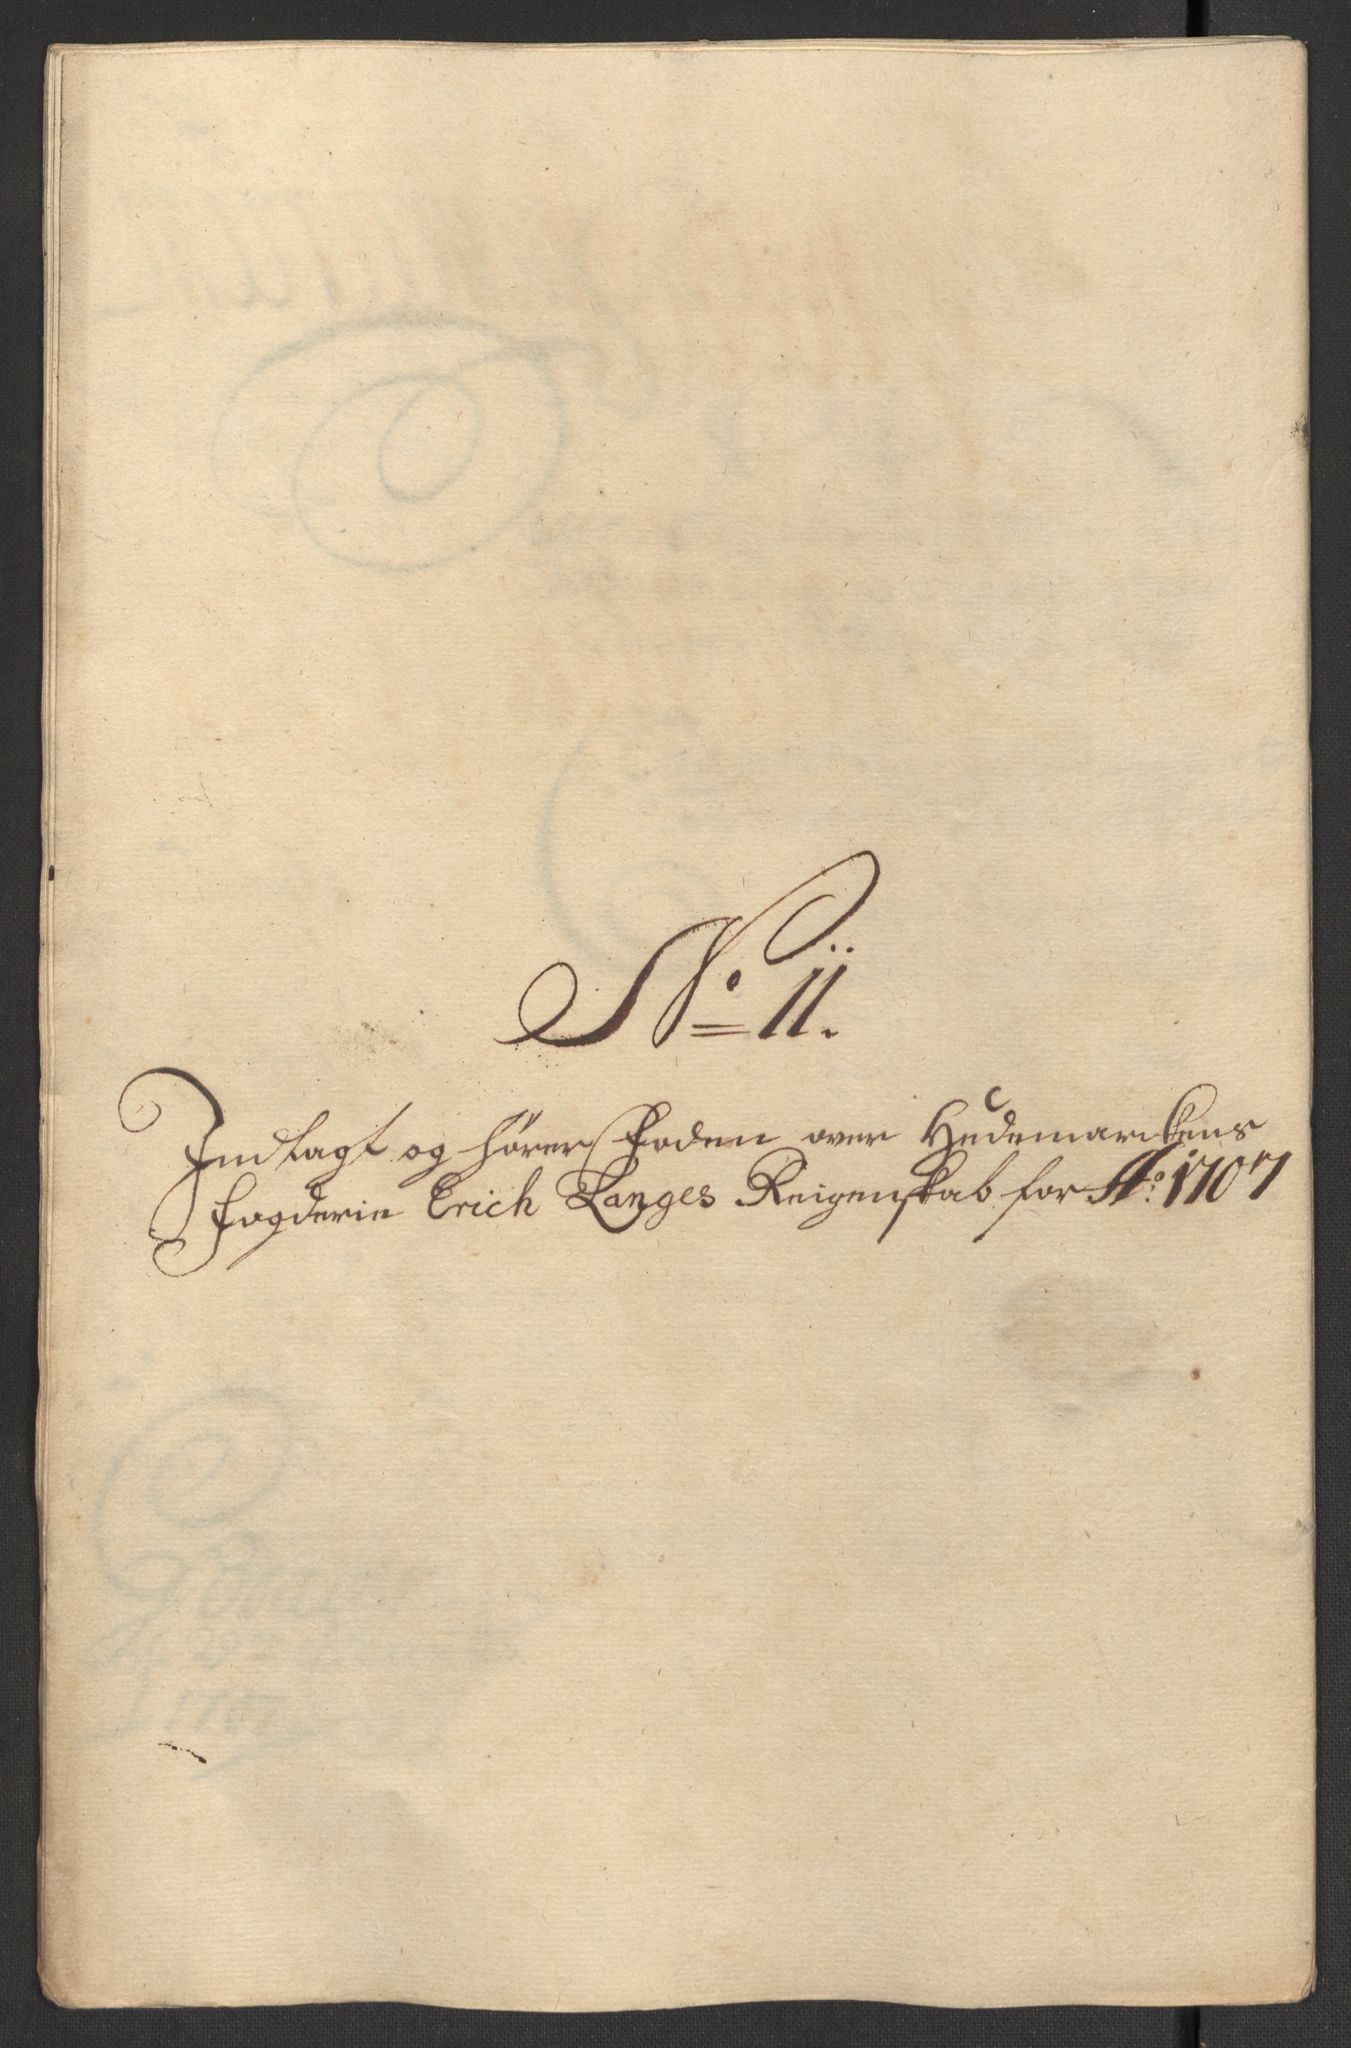 No. 11.
Indlagt og hører Foden over Hedemarckens
Fogderie Erich Langes Reigenskab for Ao. 1707